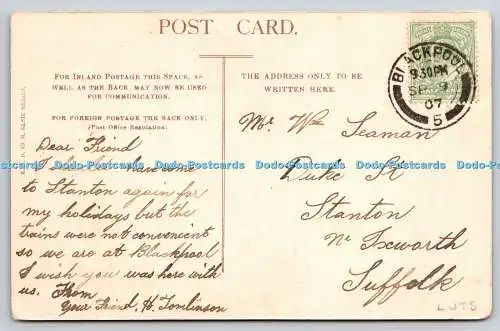 POST CARD.
FOR INLAND POSTAGE THIS SPACE, AS
WELL AS THE BACK, MAY NOW BE USED
FOR COMMUNICATION.
FOR FOREIGN POSTAGE THE BACK ONLY.
(Post Office Regulation.)
THE ADDRESS ONLY TO BE
WRITTEN HERE.
BLACKPOOL
9.30PM
SP 9
07
5
Dear Friend
I should have come
to Stanton again for
my holidays but the
trains were not convenient
so we are at Blackpool
I wish you was here with
us. From
Your Friend, H. Tomlinson
Mr Wm Seaman
Duke St
Stanton
Nr Ixworth
Suffolk
Postcards Data Postcards Data Postcards Data Postcards